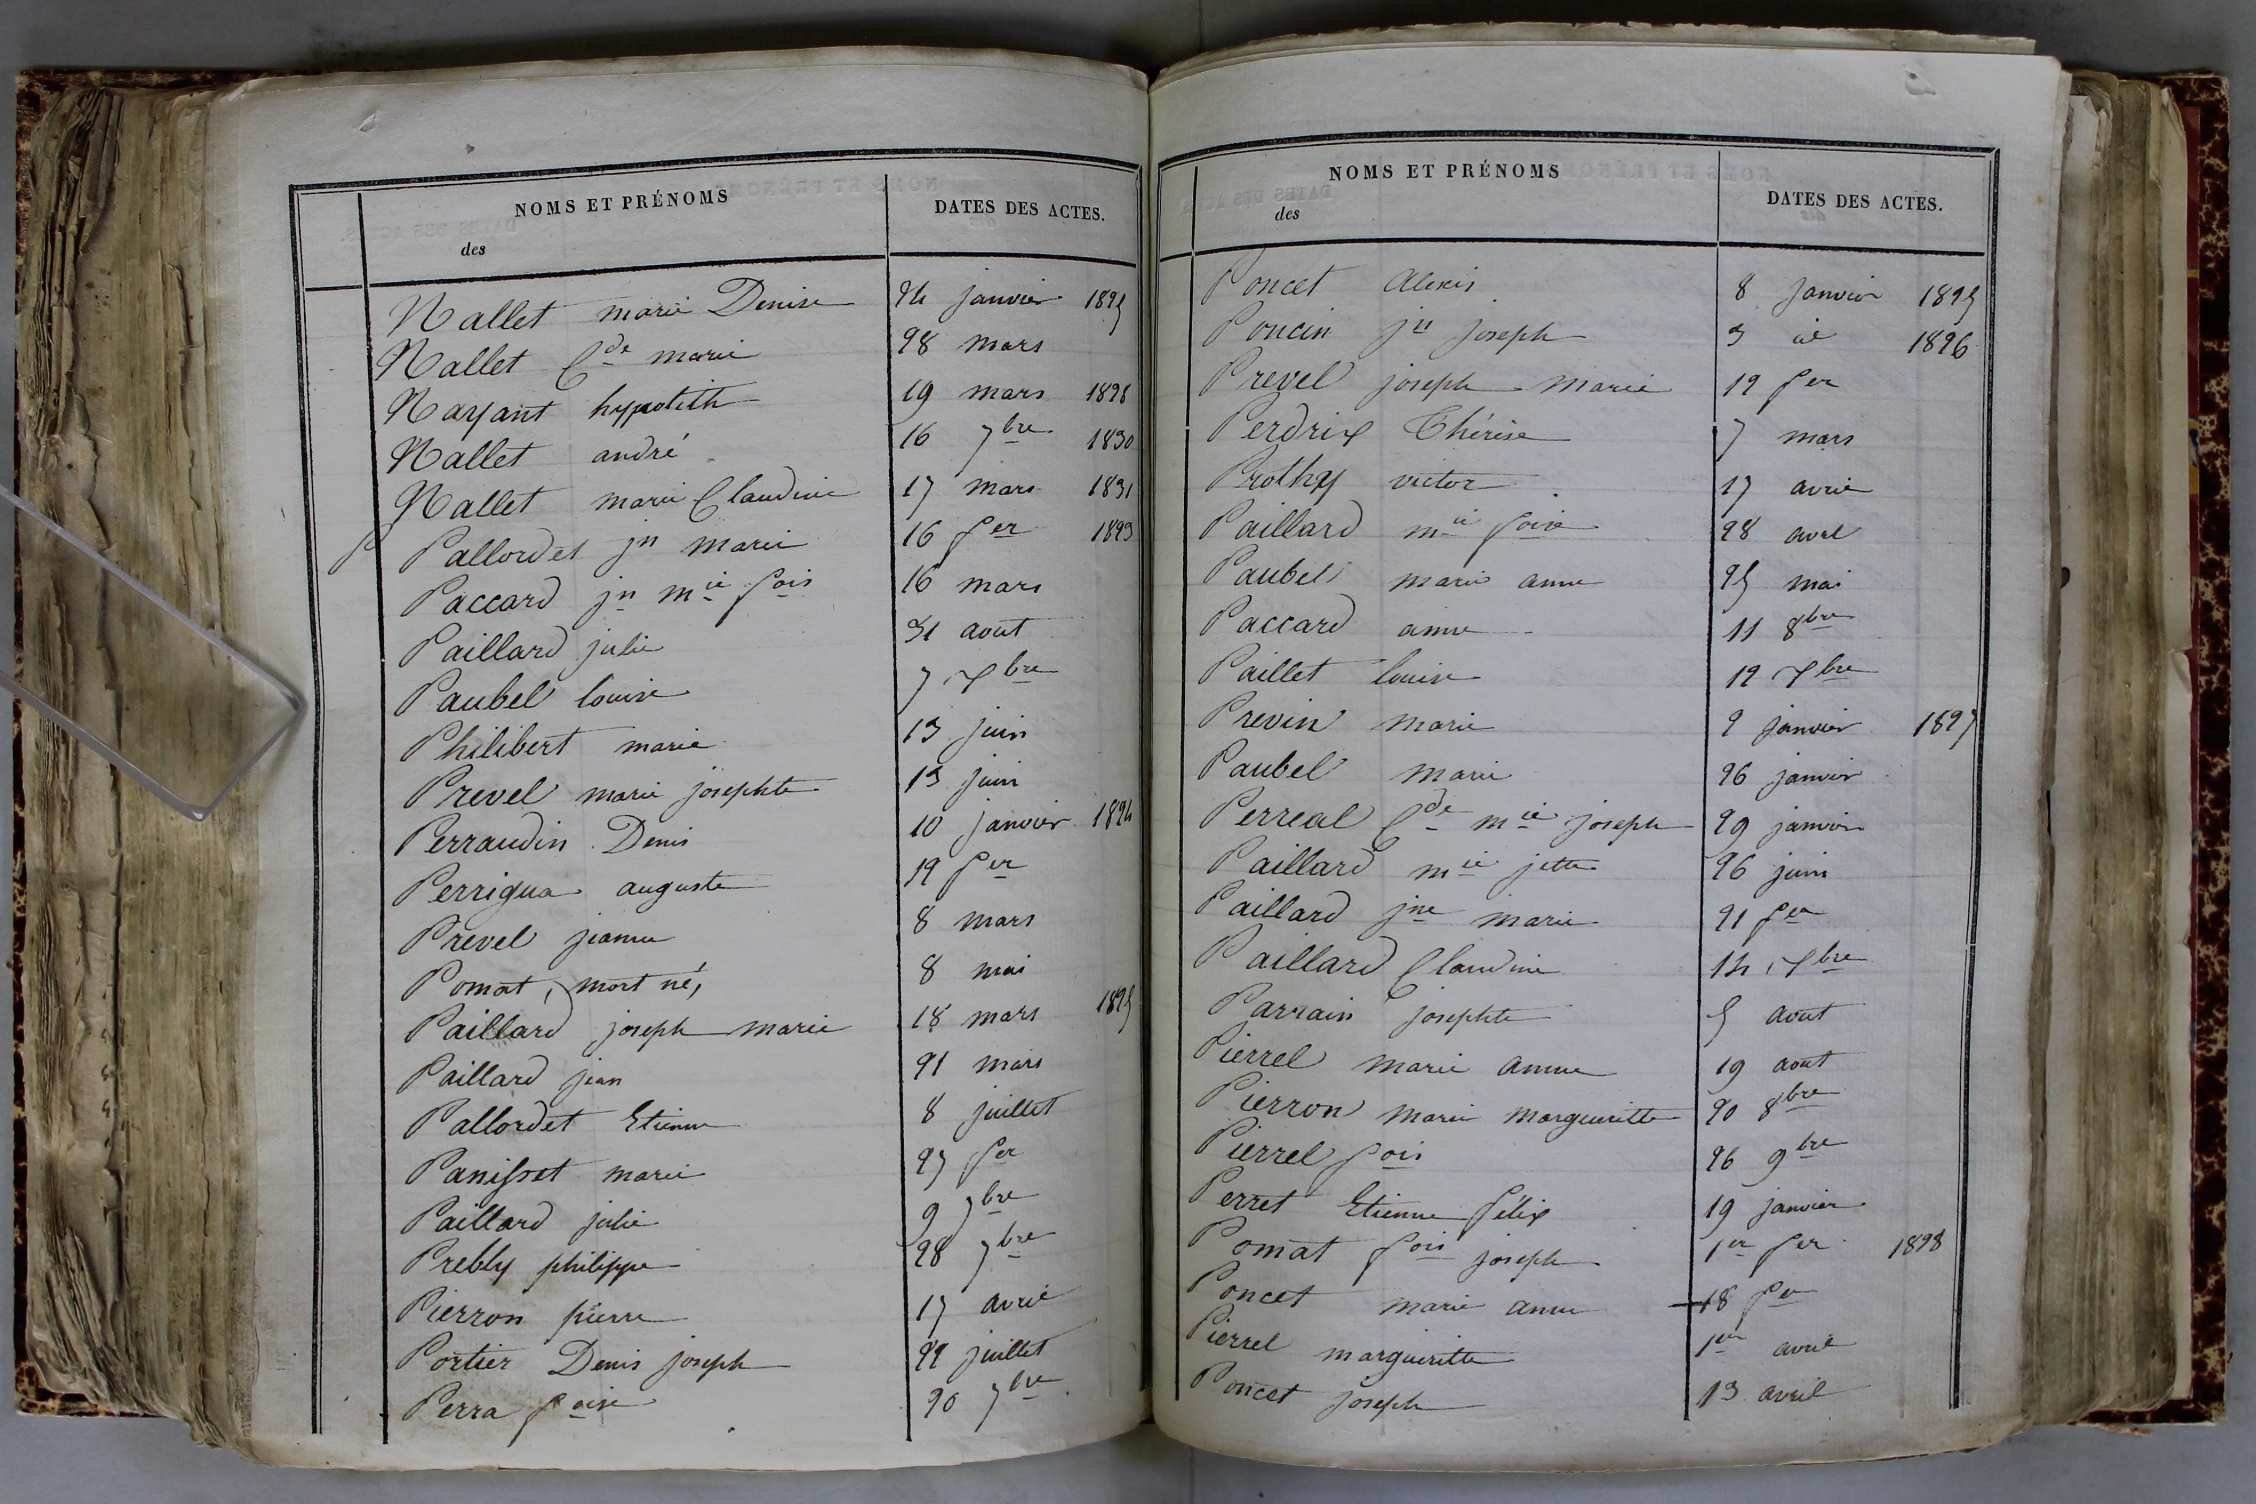 NOMS ET PRÉNOMS
des
DATES DES ACTES.
Nallet marie Denise 24 janvier 1825
Nallet Cde marie 28 mars
Nayant hypolith 19 mars 1828
Nallet andré 16 7bre 1830
Nallet marie Claudine 17 mars 1831
P Pallordet jn marie 16 fer 1823
Paccard jn mie fois 16 mars
Paillard julie 31 aout
Paubel louise 7 Xbre
Philibert marie 13 juin
Prevel marie josephte 13 juin
Perraudin Denis 10 janvier 1824
Perrigua auguste 12 fer
Prevel jeanne 8 mars
Pomat, mort né, 8 mai
Paillard joseph marie 18 mars 1825
Paillard jean 21 mars
Pallordet Etienne 8 juillet
Panisset marie 27 fer
Paillard julie 9 7bre
Prebly philippe 28 7bre
Pierron pierre 17 avril
Portier Denis joseph 22 juillet
Perra foise 20 7bre
NOMS ET PRÉNOMS
des
DATES DES ACTES.
Poncet alexis 8 janvier 1825
Poncin jn joseph 3 id 1826
Prevel joseph marie 12 fer
Perdrix Thérèse 7 mars
Prothy victor 17 avril
Paillard mie foise 28 avril
Paubel marie anne 25 mai
Paccard anne 11 8bre
Paillet louise 12 Xbre
Previn marie 2 janvier 1827
Paubel marie 26 janvier
Perreal Cde mie joseph 29 janvier
Paillard mie jette 26 juin
Paillard jne marie 21 fer
Paillard Claudine 14 Xbre
Parrain josephte 5 aout
Pierrel marie anne 19 aout
Pierron marie margueritte 20 8bre
Pierrel fois 26 9bre
Perret Etienne félix 19 janvier
Pomat fois joseph 1er fer 1828
Poncet marie anne 18 fer
Pierrel margueritte 1er avril
Poncet joseph 13 avril